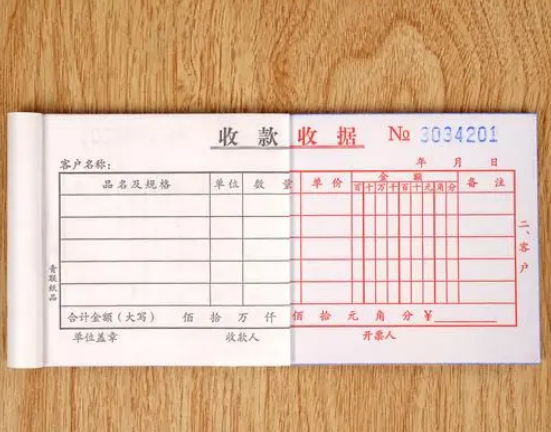 收款收据 № 3034201
客户名称： 年 月 日
品名及规格 单位 数量 单价 金额 备注
百 十 万 千 百 十 元 角 分
合计金额（大写） 佰 拾 万 仟 佰 拾 元 角 分 ¥
单位盖章 收款人 开票人
二、客户
青联纸品